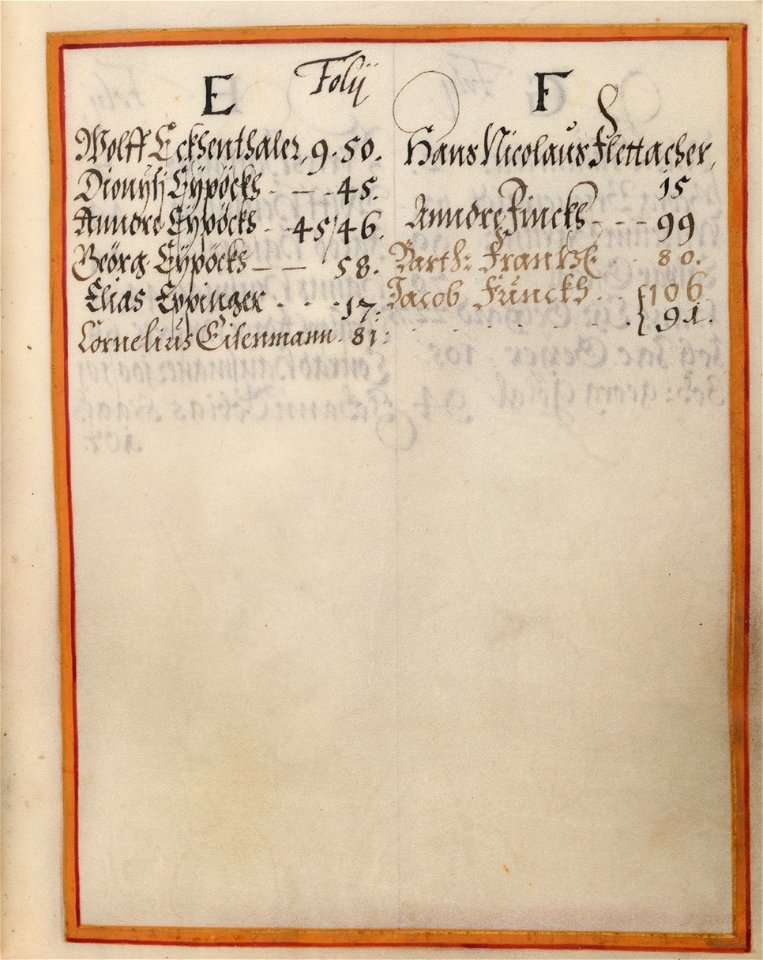 E Folij
Wolff Eckhenthaler, 9. 50.
Dionysij Eÿpöckhs - — - 45.
Anndre Eÿpöckhs - 45/46.
Geörg Eÿpöckhs — — 58.
Elias Eppinger - - - 17.
Cornelius Eisenmann. 81.
F
Hans Nicolaus Flettacher,
15
Anndre Finckhs - - - 99
Barth: . 80.
Jacob Fünckh . . {106
{91.